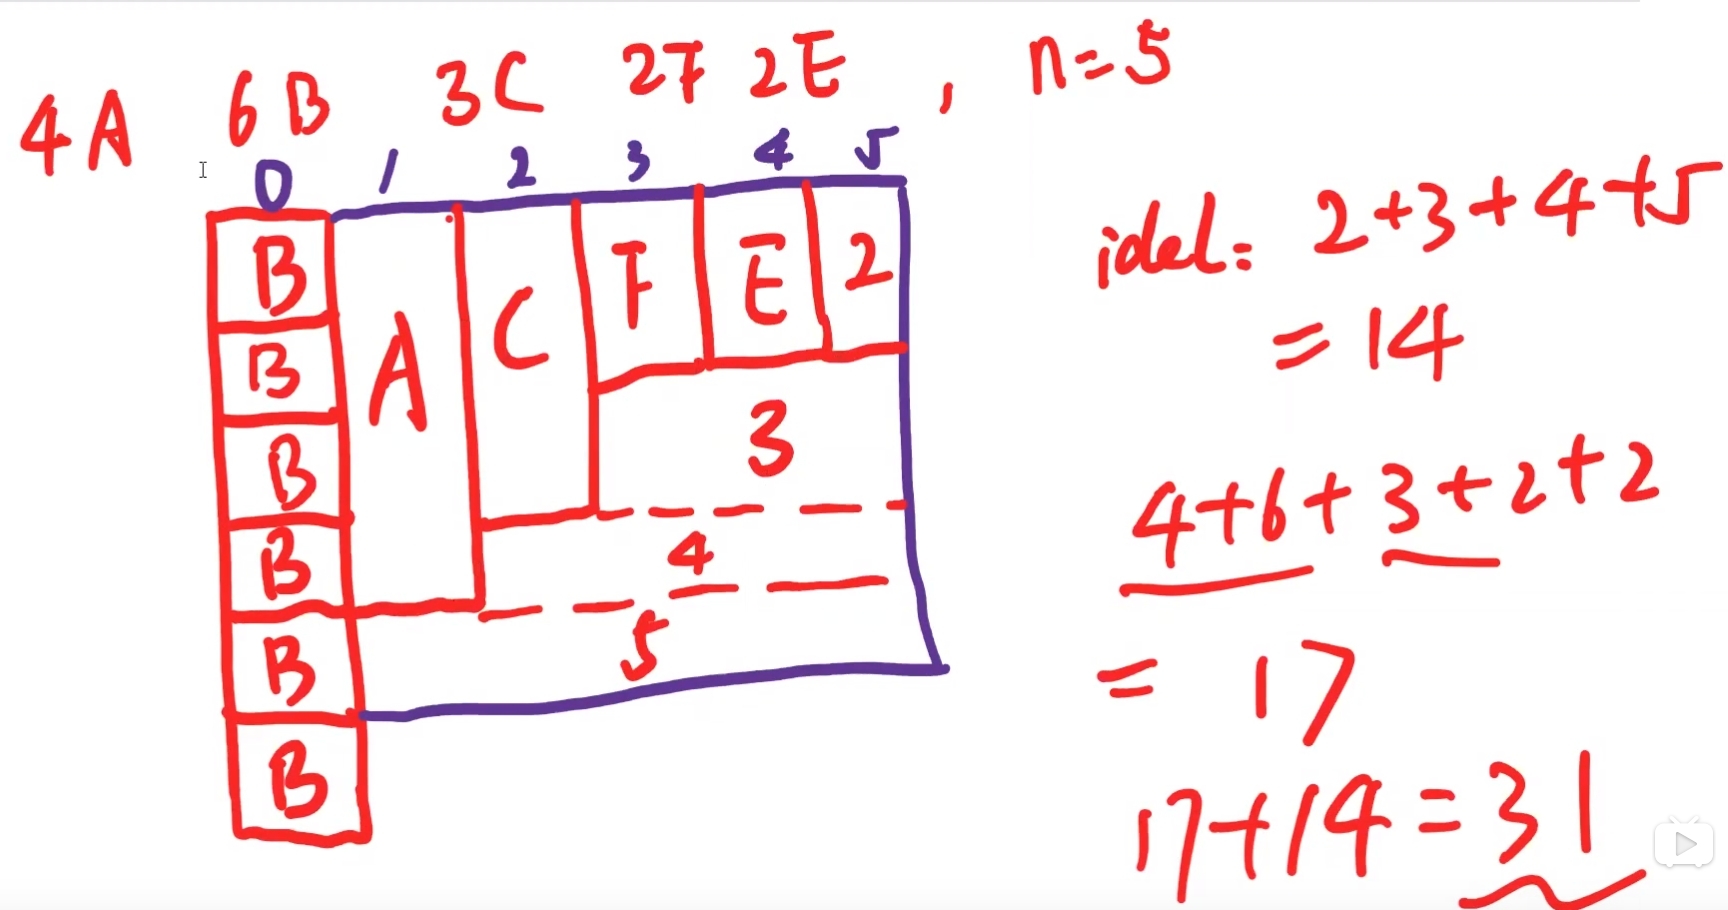 4A 6B 3C 2F 2E , n=5
0 1 2 3 4 5
B A C F E 2
B
B 3
B 4
B 5
B
idel: 2+3+4+5
= 14
4+6+3+2+2
= 17
17+14=31